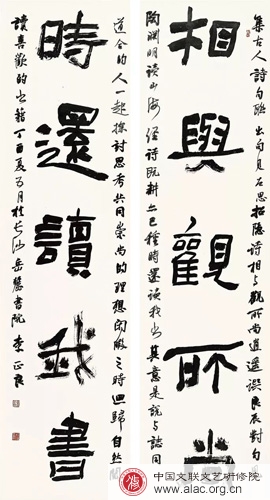 集古人詩句聯出句見左思招隱詩相與觀所尚逍遥撰良辰對句
相與觀所尚
陶淵明讀山海經詩既耕亦已種時還讀我书其意是說与誌同
道合的人一起探讨思考共同崇尚的理想閑暇之時迴歸自然
時還讀我書
讀喜歡的书籍丁酉夏月於长沙岳麓書院李正良
中国文联文艺研修院
www.alac.org.cn